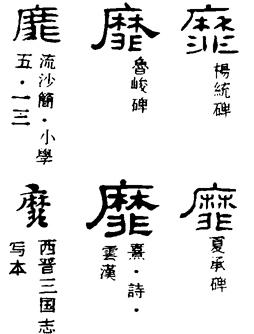 靡
流沙簡·小學
五·一三
靡
魯峻碑
靡
楊統碑
靡
西晉三国志
写本
靡
熹·詩·
雲漢
靡
夏承碑